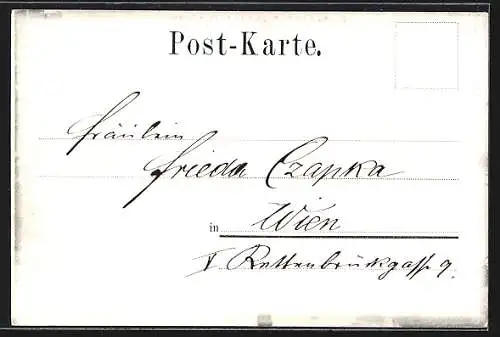 Post-Karte.
Fräulein
Frieda Czapka
in Wien
V. Rettenbrückgasse 9.